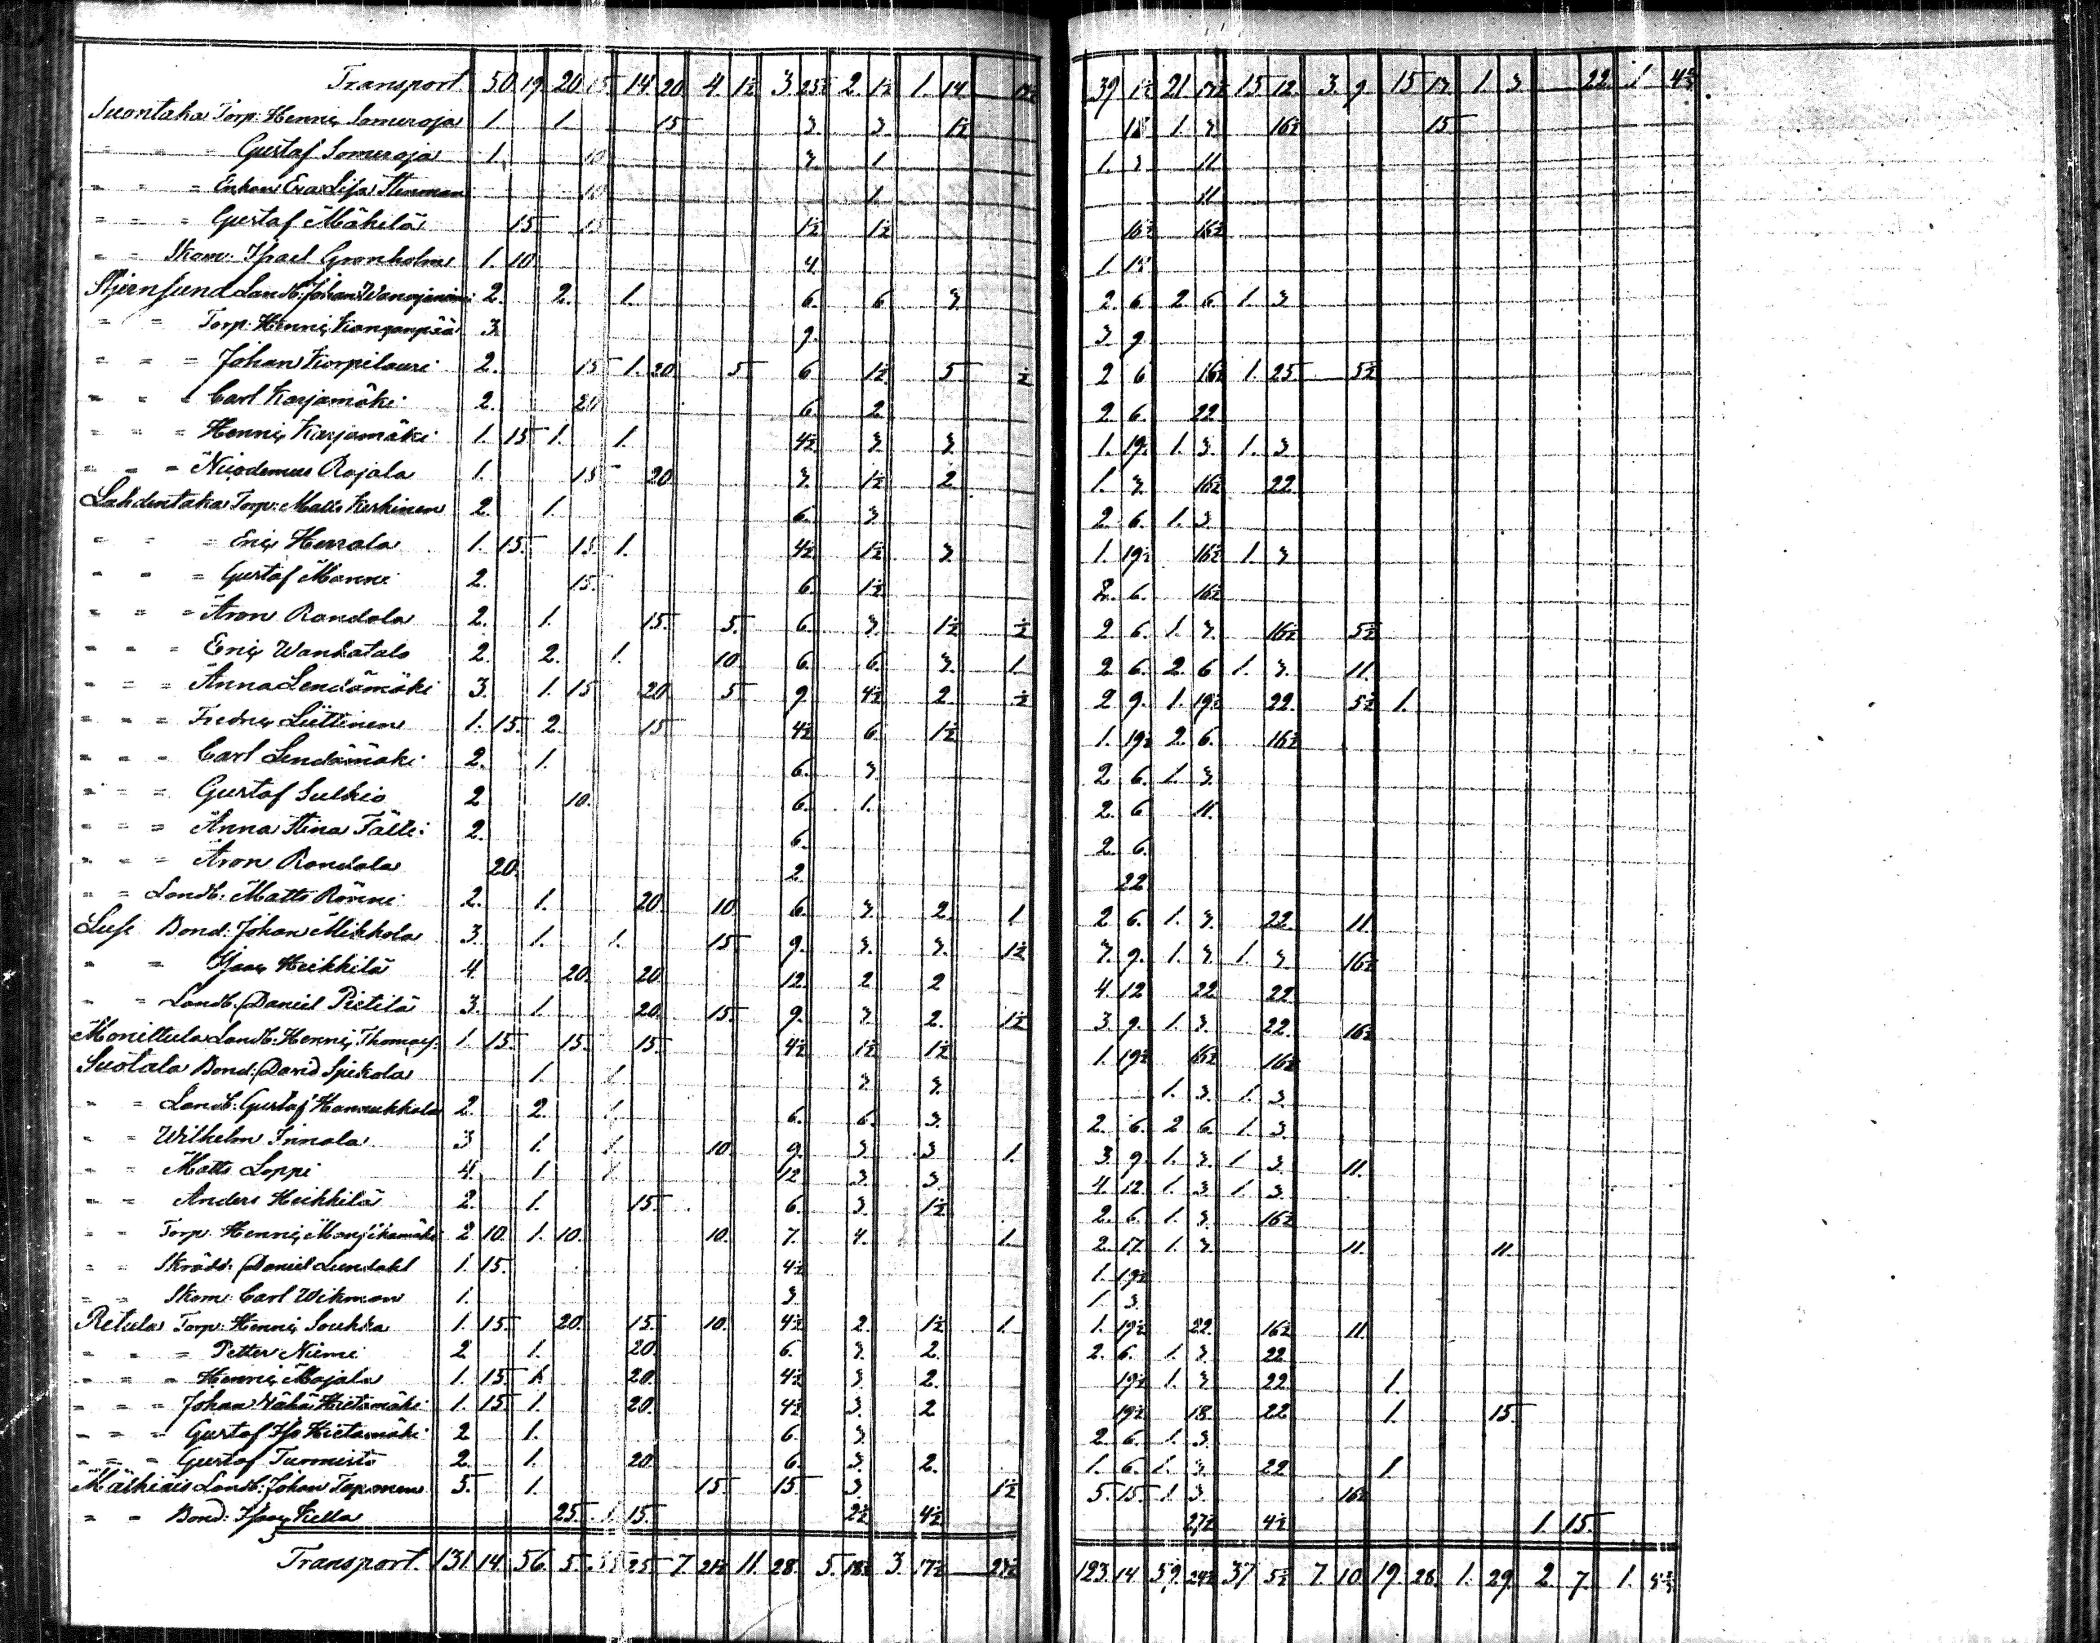 Transport 50 19 20 15 14 20 4 1½ 3 25½ 2 1½ 1 14 39 1½ 21 17½ 15 12 3 9 15 17 1 3 22 1 4¾
Suontaka Torp: Henric Someroja 1. 1. 15 3 3 1½ 18 1. 3 16½ 15
" " " Gustaf Someroja 1. 10 3 1 1. 3 11
" " = Enkan Eva Lisa Stenman 10 1. 11
" = = Gustaf Mäkelä 15 15 1½ 1½ 16½ 16½
" = Skom: Isael Grönholm 1. 10 4 1.
Stjernsund Landb: Johan 2. 2. 1. 6. 6 3 2. 6. 2. 6 1. 3
" = Torp: Henric Kanganpää 3. 9. 3. 9.
" = = Johan Korpilauri 2. 15 1. 20 5 6 1½ 5 ½ 2 6 16½ 1. 25 5½
" " " Carl Karjamäki 2. 20 6. 2 2 6. 22
" " = Henric Karjamäki 1. 15 1. 1. 4½ 3 3 1. 19½ 1. 3. 1. 3
" = = Nicodemus Rajala 1. 15 20 3 1½ 2 1. 3. 16½ 22
Lahdentaka Torp: Matts Kerkinen 2. 1. 6. 3 2 6. 1. 3.
" = = Eric Herrala 1. 15. 15. 1. 4½ 1½ 3 1. 19½ 16½ 1. 3
" = = Gustaf Manni 2. 15. 6. 1½ 2. 6. 16½
" = = Aron Randala 2. 1. 15. 5. 6. 3 1½ ½ 2 6. 1. 3. 16½ 5½
" = = Eric Wanhatalo 2. 2. 1. 10 6. 6. 3. 1. 2 6. 2 6 1. 3. 11.
" = = Anna Lendämäki 3. 1. 15 20 5 9. 4½ 2. ½ 2 9. 1. 19½ 22. 5½ 1.
" = = Fredric Liittinen 1. 15. 2. 15 4½ 6. 1½ 1. 19½ 2. 6. 16½
" = = Carl Lendämäki 2. 1. 6. 3 2 6. 1. 3.
" = = Gustaf Sulkio 2 10. 6. 1. 2. 6 11.
" = = Anna Stina Fälti 2. 6. 2 6.
" = = Aron Randala 20. 2. 22
" = Landb: Matts Rönni 2. 1. 20. 10. 6. 3. 2. 1 2 6. 1. 3. 22. 11.
Susi Bond: Johan Mikkola 3. 1. 1. 15. 9. 3. 3. 1½ 3. 9. 1. 3. 1. 3 16½
" = Isaac Heikkilä 4. 20. 20. 12. 2 2 4. 12 22 22
" = Landb: Daniel Pietilä 3. 1. 20. 15. 9. 3. 2. 1½ 3 9. 1. 3. 22. 16½
Monittula Landb: Henric Thomas: 1. 15. 15. 15. 4½ 1½ 1½ 1. 19½ 16½ 16½
Suotala Bond: David Spikola 1. 1. 3 3. 1. 3. 1. 3.
" = Landb: Gustaf Hanukkala 2. 2. 1. 6. 6. 3. 2. 6. 2 6 1. 3.
" = Wilhelm Innala 3 1. 1. 10. 9. 3 3 1. 3. 9 1. 3. 1. 3 11.
" = Matts Loppi 4. 1. 1. 12 3 3. 4. 12 1. 3 1. 3
" = Anders Heikkilä 2. 1. 15. 6. 3. 1½ 2. 6. 1. 3. 16½
" = Torp: Henric 2 10. 1. 10. 10. 7. 4. 1. 2 17. 1. 3. 11. 11.
" = Skrädd: Daniel Lundahl 1. 15. 4½ 1. 19½
" = Skom: Carl Wikman 1. 3. 1. 3.
Retula Torp: Henric Soukka 1. 15. 20. 15. 10. 4½ 2. 1½ 1. 1. 19½ 22. 16½ 11.
" = = Petter Niemi 2 1. 20. 6. 3. 2. 2. 6. 1. 3. 22
" = = Henric Majala 1. 15. 1. 20. 4½ 3 2. 19½ 1. 3 22 1.
" = = Johan Vähä Hietamäki 1. 15 1. 20. 4½ 3. 2 19½ 18. 22 1. 15.
" = = Gustaf Iso Hietamäki 2 1. 6. 3. 2 6. 1. 3.
" = = Gustaf Turmisto 2. 1. 20 6. 3. 2. 1. 6. 1. 3. 22 1.
Mälkiäis Landb: Johan Tapanen 5. 1. 15. 15. 3. 1½ 5. 15. 1. 3. 16½
" = Bond: Isaac Kella 25. 1. 15. 2½ 4½ 27½ 4½ 1. 15.
Transport. 131. 14. 56. 5. 25 7. 21½ 11. 28. 5. 18½ 3. 17½ 27½ 123. 14 59. 24½ 37 5½ 7. 10. 19. 28. 1. 29. 2. 7. 1.